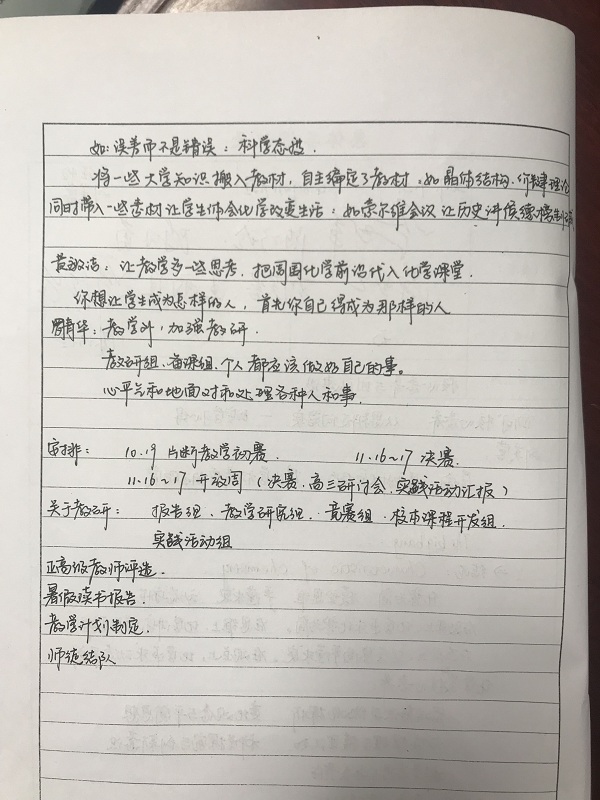 如:误差而不是错误:科学态度.
将一些大学知识搬入教材,自主编定了教材,如晶体结构、价键理论
同时带入一些素材让学生体会化学改变生活:如索尔维会议 让历史讲
黄敏洁:让教学多一些思考.把周围化学前沿代入化学课堂.
你想让学生成为怎样的人,首先你自己得成为那样的人
华:教学外,加强教研.
教研组、备课组、个人都应该做好自己的事。
心平气和地面对和处理各种人和事.
安排: 10.19 片断教学初赛. 11.16~17 决赛.
11.16~17 开放周(决赛.高三研讨会.实践活动汇报)
关于教研: 报告组、教学研究组.竞赛组.校本课程开发组.
实践活动组
正高级教师评选.
暑假读书报告.
教学计划制定.
师徒结队